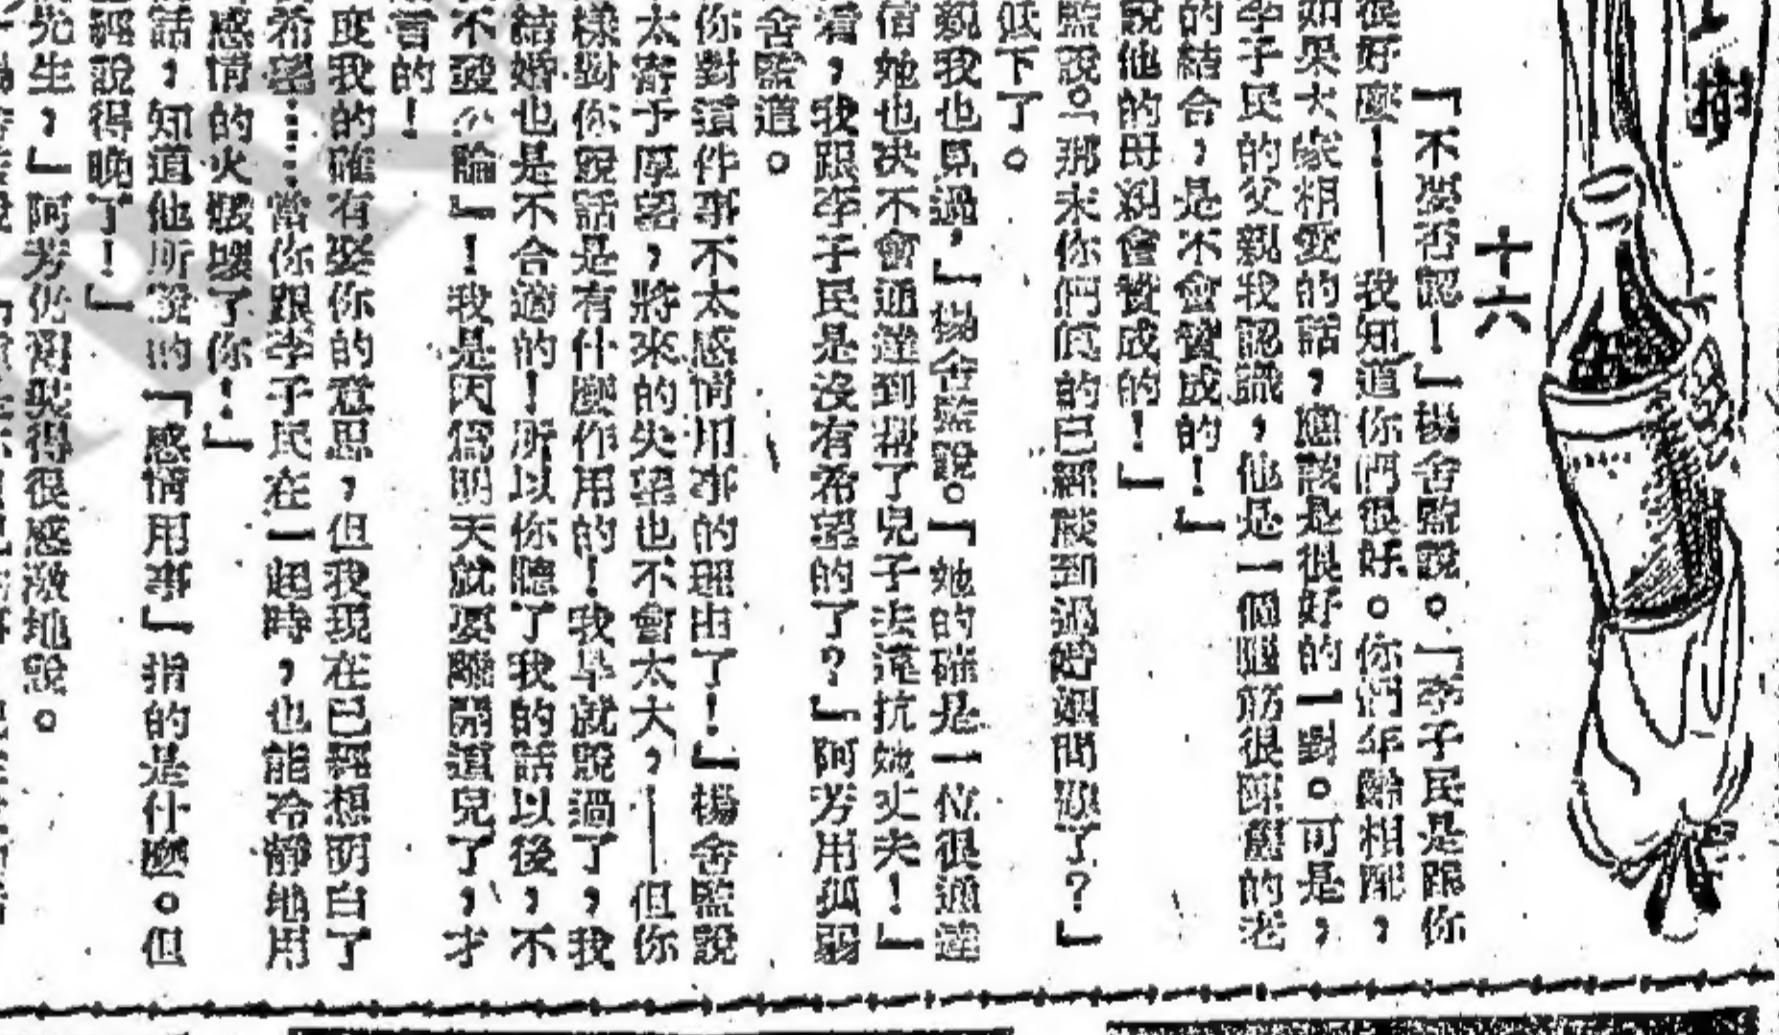 樹
十六
『不要否認！』楊舍監說。『李子民是跟你
很好麼！——我知道你們很好。你們年齡相配，
如果大家相愛的話，應該是很好的一對。可是，
李子民的父親我認識，他是一個腦筋很陳舊的老
的結合，是不會贊成的！』
說他的母親會贊成的！』
監說。『那末你們真的已經談到過婚姻問題了？』
低下了。
親我也見過，』楊舍監說。『她的確是一位很通達
她也决不會通達到幫了兒子去違抗她丈夫！』
着，我跟李子民是沒有希望的了？』阿芳用孤弱
舍監道。
你對這件事不太感情用事的理由了！』楊舍監說
太寄于厚望，將來的失望也不會太大，——但你
樣對你說話是有什麼作用的！我早就說過了，我
結婚也是不合適的！所以你聽了我的話以後，不
不發谬論』！我是因爲明天就要離開這兒了，才
言的！
度我的確有娶你的意思，但我現在已經想明白了
希望……當你跟李子民在一起時，也能冷靜地用
感情的火毀了你！』
話，知道他所說的『感情用事』指的是什麼。但
經說得晚了！』
先生，』阿芳得很感激地說。